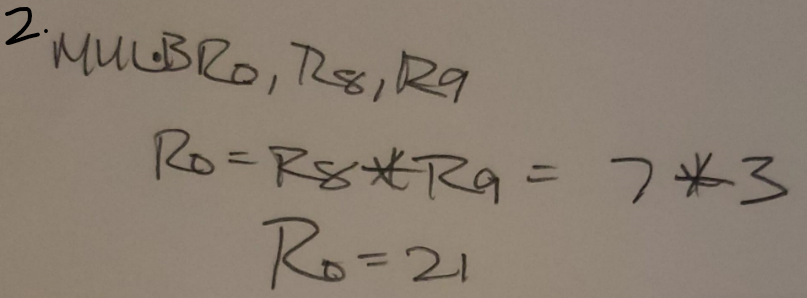 2. MUL.B R0, R8, R9
R0 = R8 * R9 = 7 * 3
R0 = 21